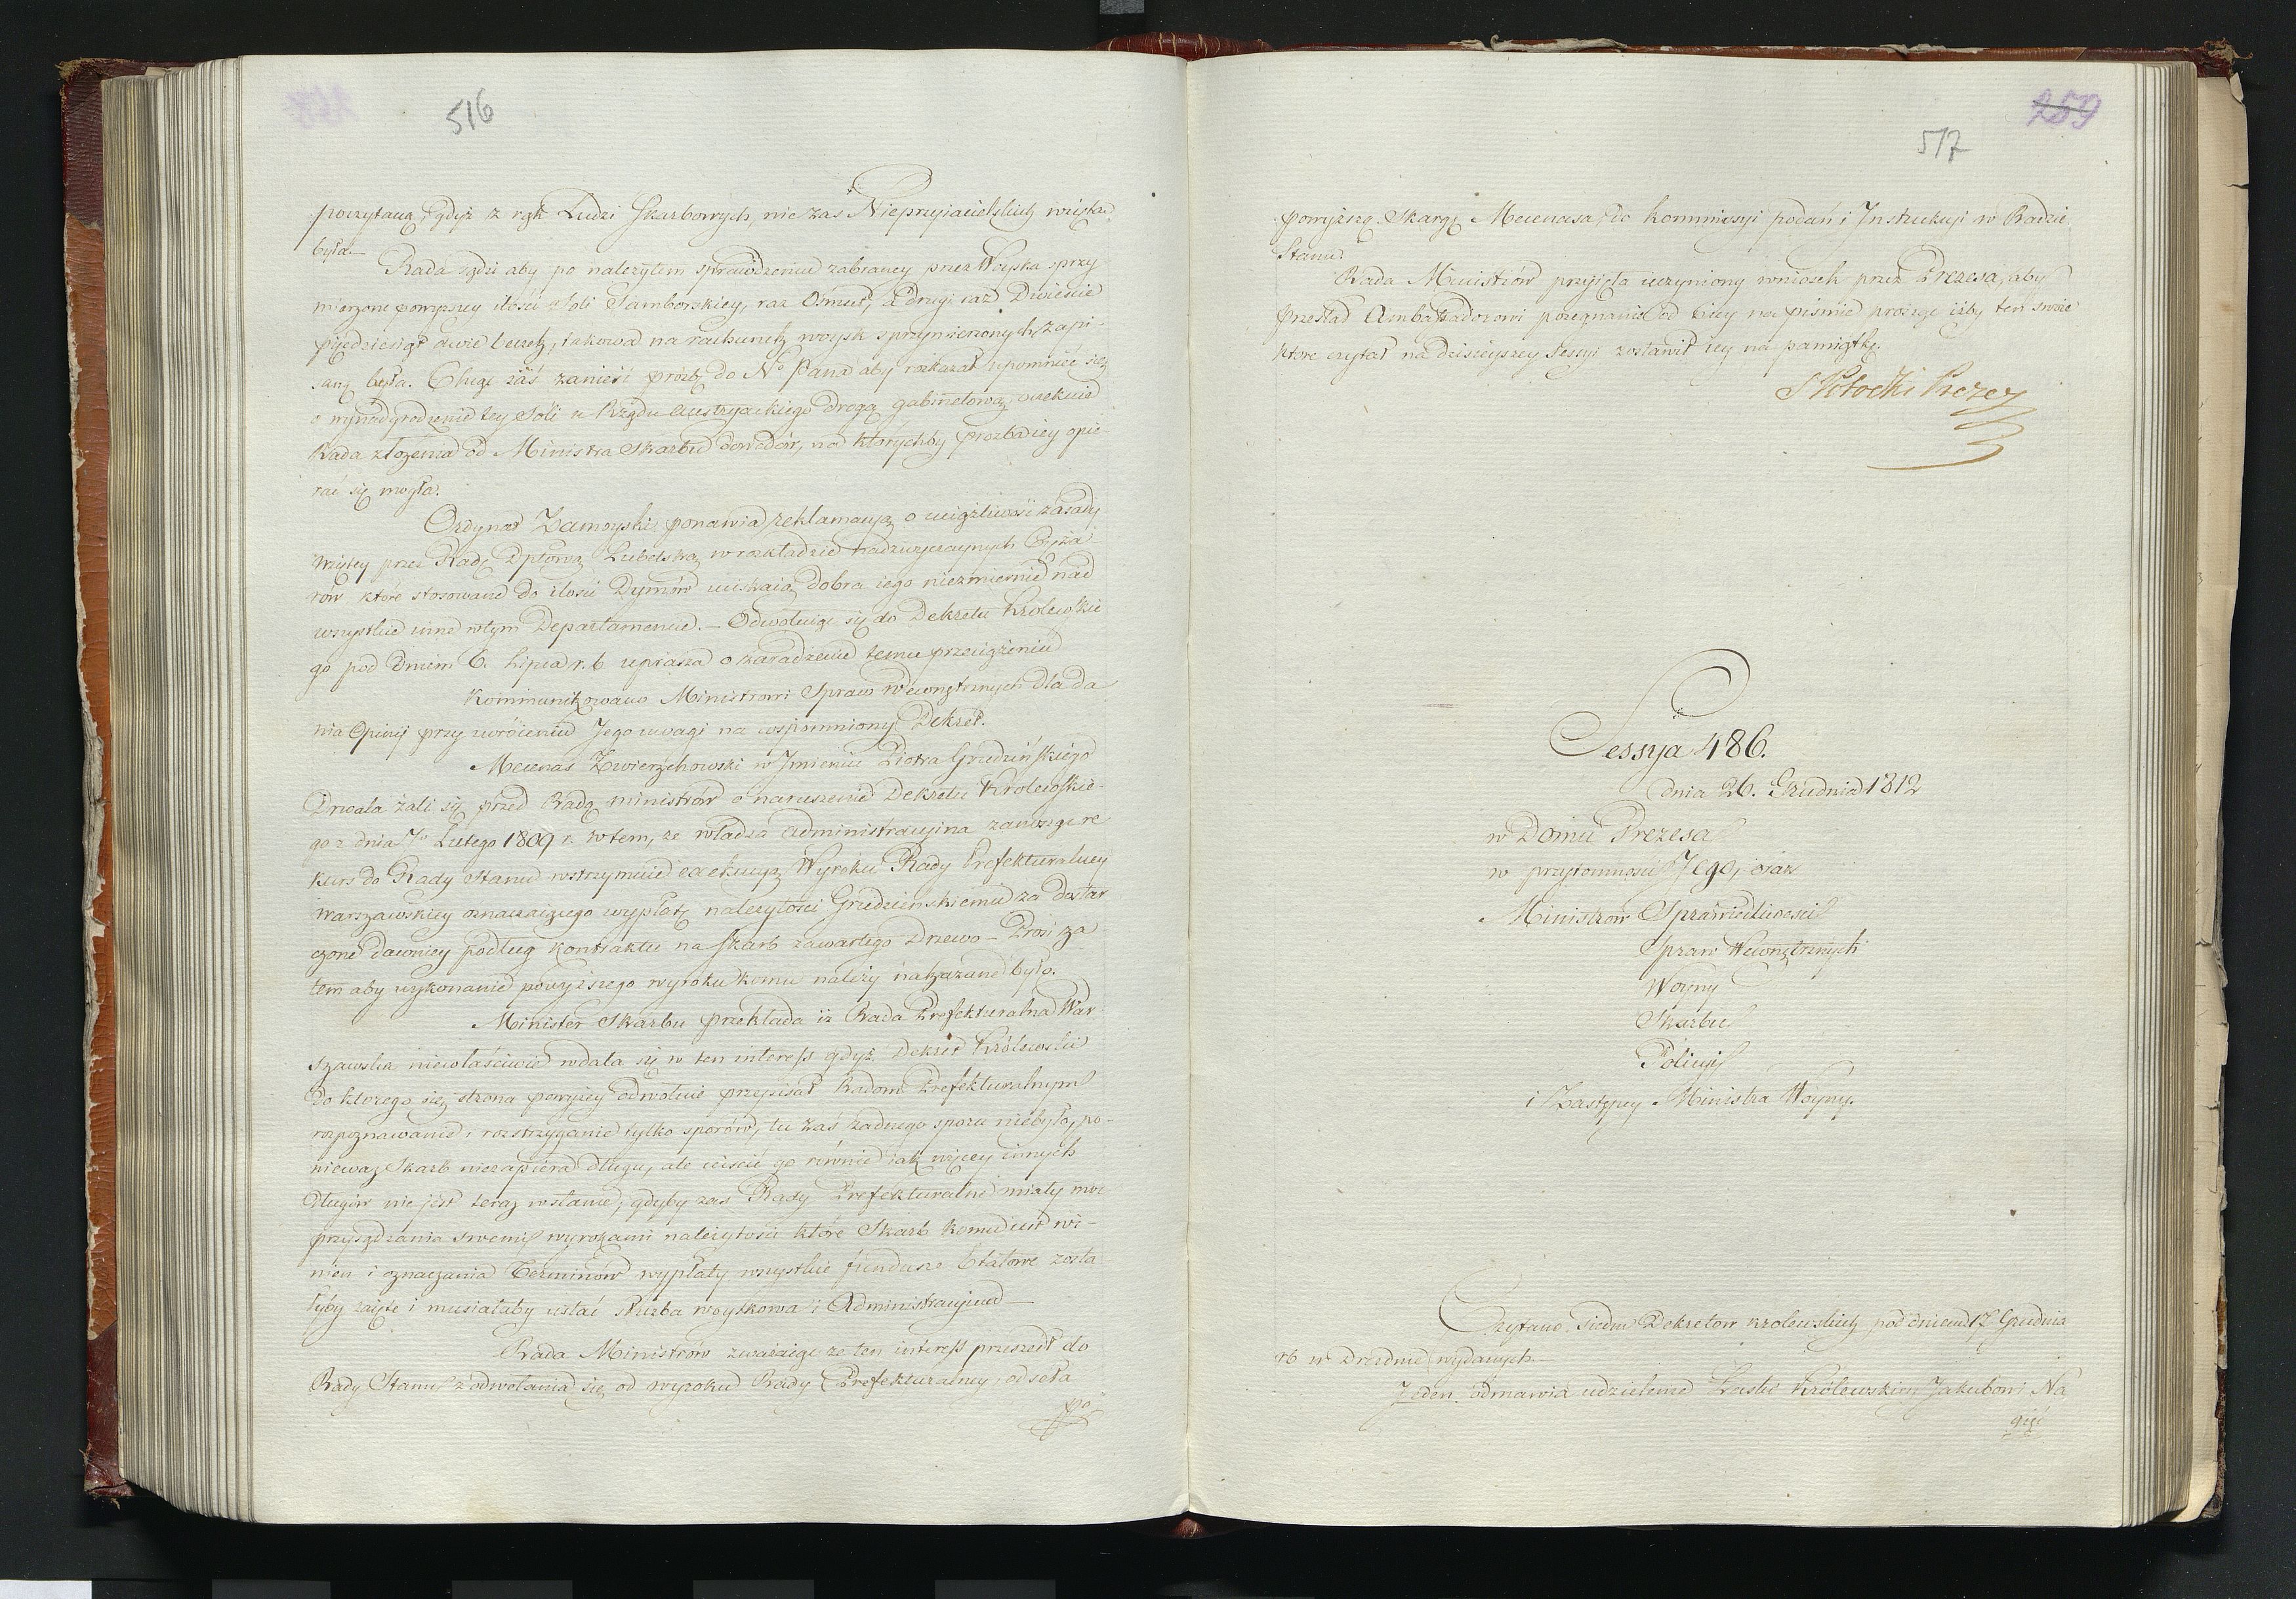 516
poczytaną, gdyż z rąk Ludzi Skarbowych, nie zas Nieprzyiacielskich wzięta
była.—
Rada sądzi aby po należytem sprawdzeniu zabraney przez Woyska sprzy-
mierzone powyższey ilości Soli Samborskiey, raz Osmset, a drugi raz Dwieście
pięćdziesiąt dwie beczek, takowa na rachunek woysk sprzymierzonych zapi-
saną była. Chcąc zaś zanieść prozbę do Nº Pana aby rozkazał upomnieć się
o wynadgrodzenie tey Soli u Rządu Austryackiego drogą gabinetową, oczekuie
Rada złożenia od Ministra Skarbu dowodów, na którychby prozba iey opie-
rać się mogła.
Ordynat Zamoyski ponawia reklamacyą o uciążliwości zasady
wziętey przez Radę Dptową Lubelską w rozkładzie nadzwyczaynych Cięża-
rów które stosowane do ilości Dymów uciskaią dobra iego niezmiernie nad
wszystkie inne w tym Departamencie.— Odwołuiąc się do Dekretu Królewskie
go pod Dniem 6. Lipca r. b uprasza o zaradzenie temu przeciążeniu
Kommunikowano Ministrowi Spraw Wewnętrznych dla da
nia Opinij przy zwróceniu Jego uwagi na wspomniony Dekret.
Mecenas Zwierzchowski w Imieniu Piotra Grudzińskiego
Drwala żali się przed Radą ministrów o naruszenie Dekretu Królewskie-
go z dnia 7º Lutego 1809 r. w tem, ze władza administracyina zanosząc re
kurs do Rady Stanu wstrzymuie exekucyą Wyroku Rady Prefekturalney
Warszawskiey oznaczaiącego wypłatę należytości Grudzinskiemu za dostar
czone dawniey podług kontraktu na Skarb zawartego Drzewo— Prosi za
tem aby wykonanie powyższego wyroku komu należy nakazane było.
Minister Skarbu przekłada iż Rada Prefekturalna War
szawska niewłaściwie wdała się w ten interess gdyż Dekret Królewski
do ktorego się strona powyżey odwołuie przepisał Radom Prefekturalnym
rozpoznawanie i rozstrzyganie tylko sporów, tu zaś żadnego sporu niebyło, po-
nieważ Skarb niezapiera długu, ale uiścić go równie iak więcey innych
długów nie jest teraz wstanie, gdyby zas Rady Prefekturalne miały moc
przysądzania swemi wyrokami należytości które Skarb komu iest wi-
nien i oznaczania Terminów wypłaty wszystkie fundusze Etatowe zosta
łyby zaięte i musiałaby ustać służba woyskowa i Administracyina—
Rada Ministrów zważaiąc ze ten interess przeszedł do
Rady Stanu z odwołania się od wyroku Rady Prefekturalney, odseła
po
259
517
powyższą Skargę Mecenasa, do Kommissyi podań i Instrukcyi w Radzie
Stanu.
Rada Ministrów przyięła uczyniony wniosek przez Prezesa, aby
przesłał Ambassadorowi pożegnanie od niey na piśmie prosząc iżby ten swoie
które czytał na dzisieyszey Sessyi zostawił iey na pamiątkę.
S Potocki Prezes
Sessya 486.
dnia 26. Grudnia 1812
w Domu Prezesa
w przytomności Jego, oraz
Ministrów Sprawiedliwości
Spraw Wewnętrznych
Woyny
Skarbu
Policyi
i Zastępcy Ministra Woyny.
Czytano siedm Dekretow krolewskich pod dniem 17 Grudnia
rb w Dreznie wydanych.
Jeden odmawia udzielenie Łaski Królewskiey Jakubowi Na
gięć